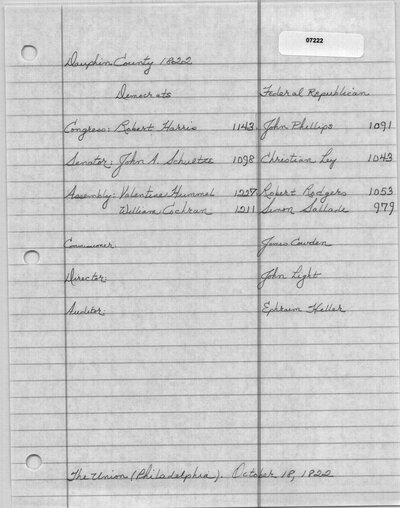 07222
Dauphin County 1822
Democrats Federal Republican
Congress: Robert Harris 1143 John Phillips 1091
Senator: John A. Schultze 1098 Christian Ley 1043
Assembly: Valentine Hummel 1227 Robert Rodgers 1053
William Cochran 1211 Simon Sallade 979
Commissioner: James Cowden
Director: John Light
Auditor: Ephraim Heller
The Union (Philadelphia). October 18, 1822